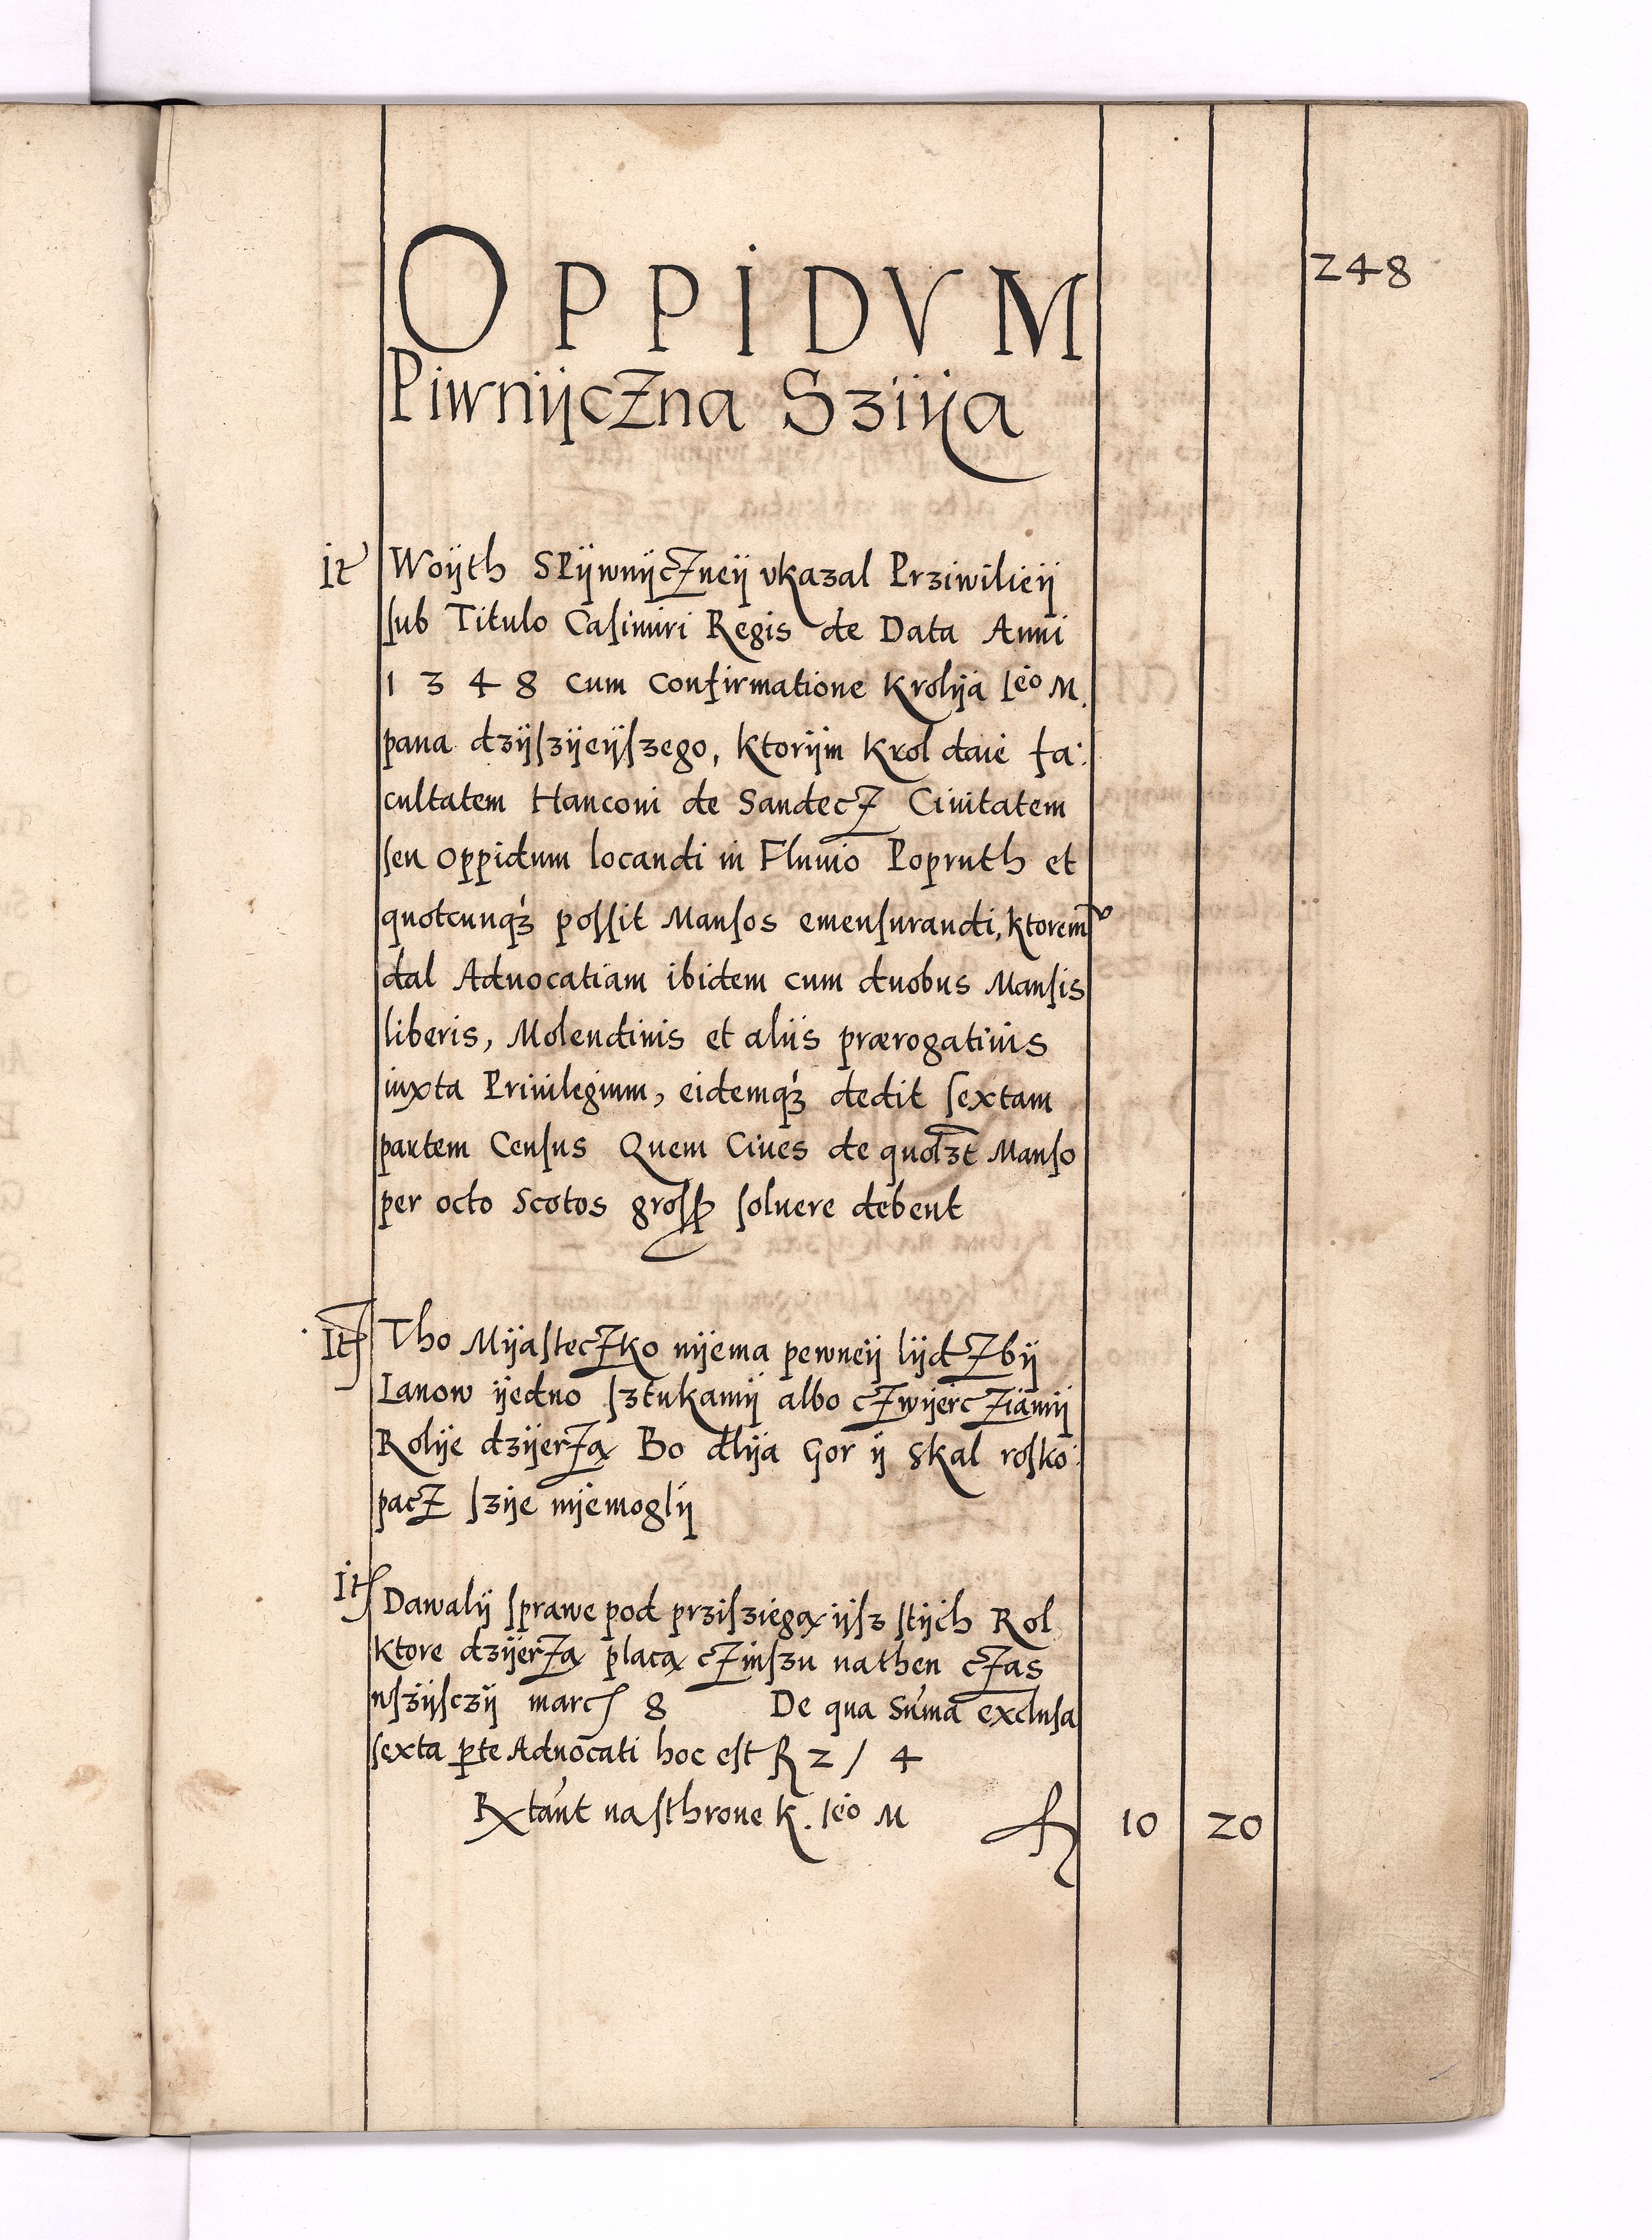 248
OPPIDVM
Piwnijczna Szija
It Woijth SPijwnijczneij vkazal Prziwilieij
sub Titulo Casimiri Regis de Data Anni
1348 cum confirmatione Krolija Ieo M.
pana dzijszijeijszego, ktorijm Krol daie fa:
cultatem Hanconi de Sandecz Ciuitatem
seu oppidum locandi in Fluuio Popruth et
quotcunqȝ possit Mansos emensurandi, ktoremv
dal Aduocatiam ibidem cum duobus Mansis
liberis, Molendinis et aliis prærogatiuis
iuxta Priuilegium, eidemqȝ dedit sextam
partem Census Quem Ciues de quolȝt Manso
per octo Scotos gross soluere debent
It Tho Mijasteczko nijema pewneij lijdczbij
Lanow ijedno sztukamij albo czwijercziamij
Rolije dzijerzą Bo dlija Gor ij Skal rosko:
pacz szije nijemoglij
It Dawalij sprawe pod prziszięgą ijsz stijch Rol
ktore dzijerzą placą czinszu nathen czas
wszijsczij marc 8 De qua Suma exclusa
sexta pte Aduocati hoc est R 2 / 4
Rxtant na sthrone K. Ieo M f 10 20